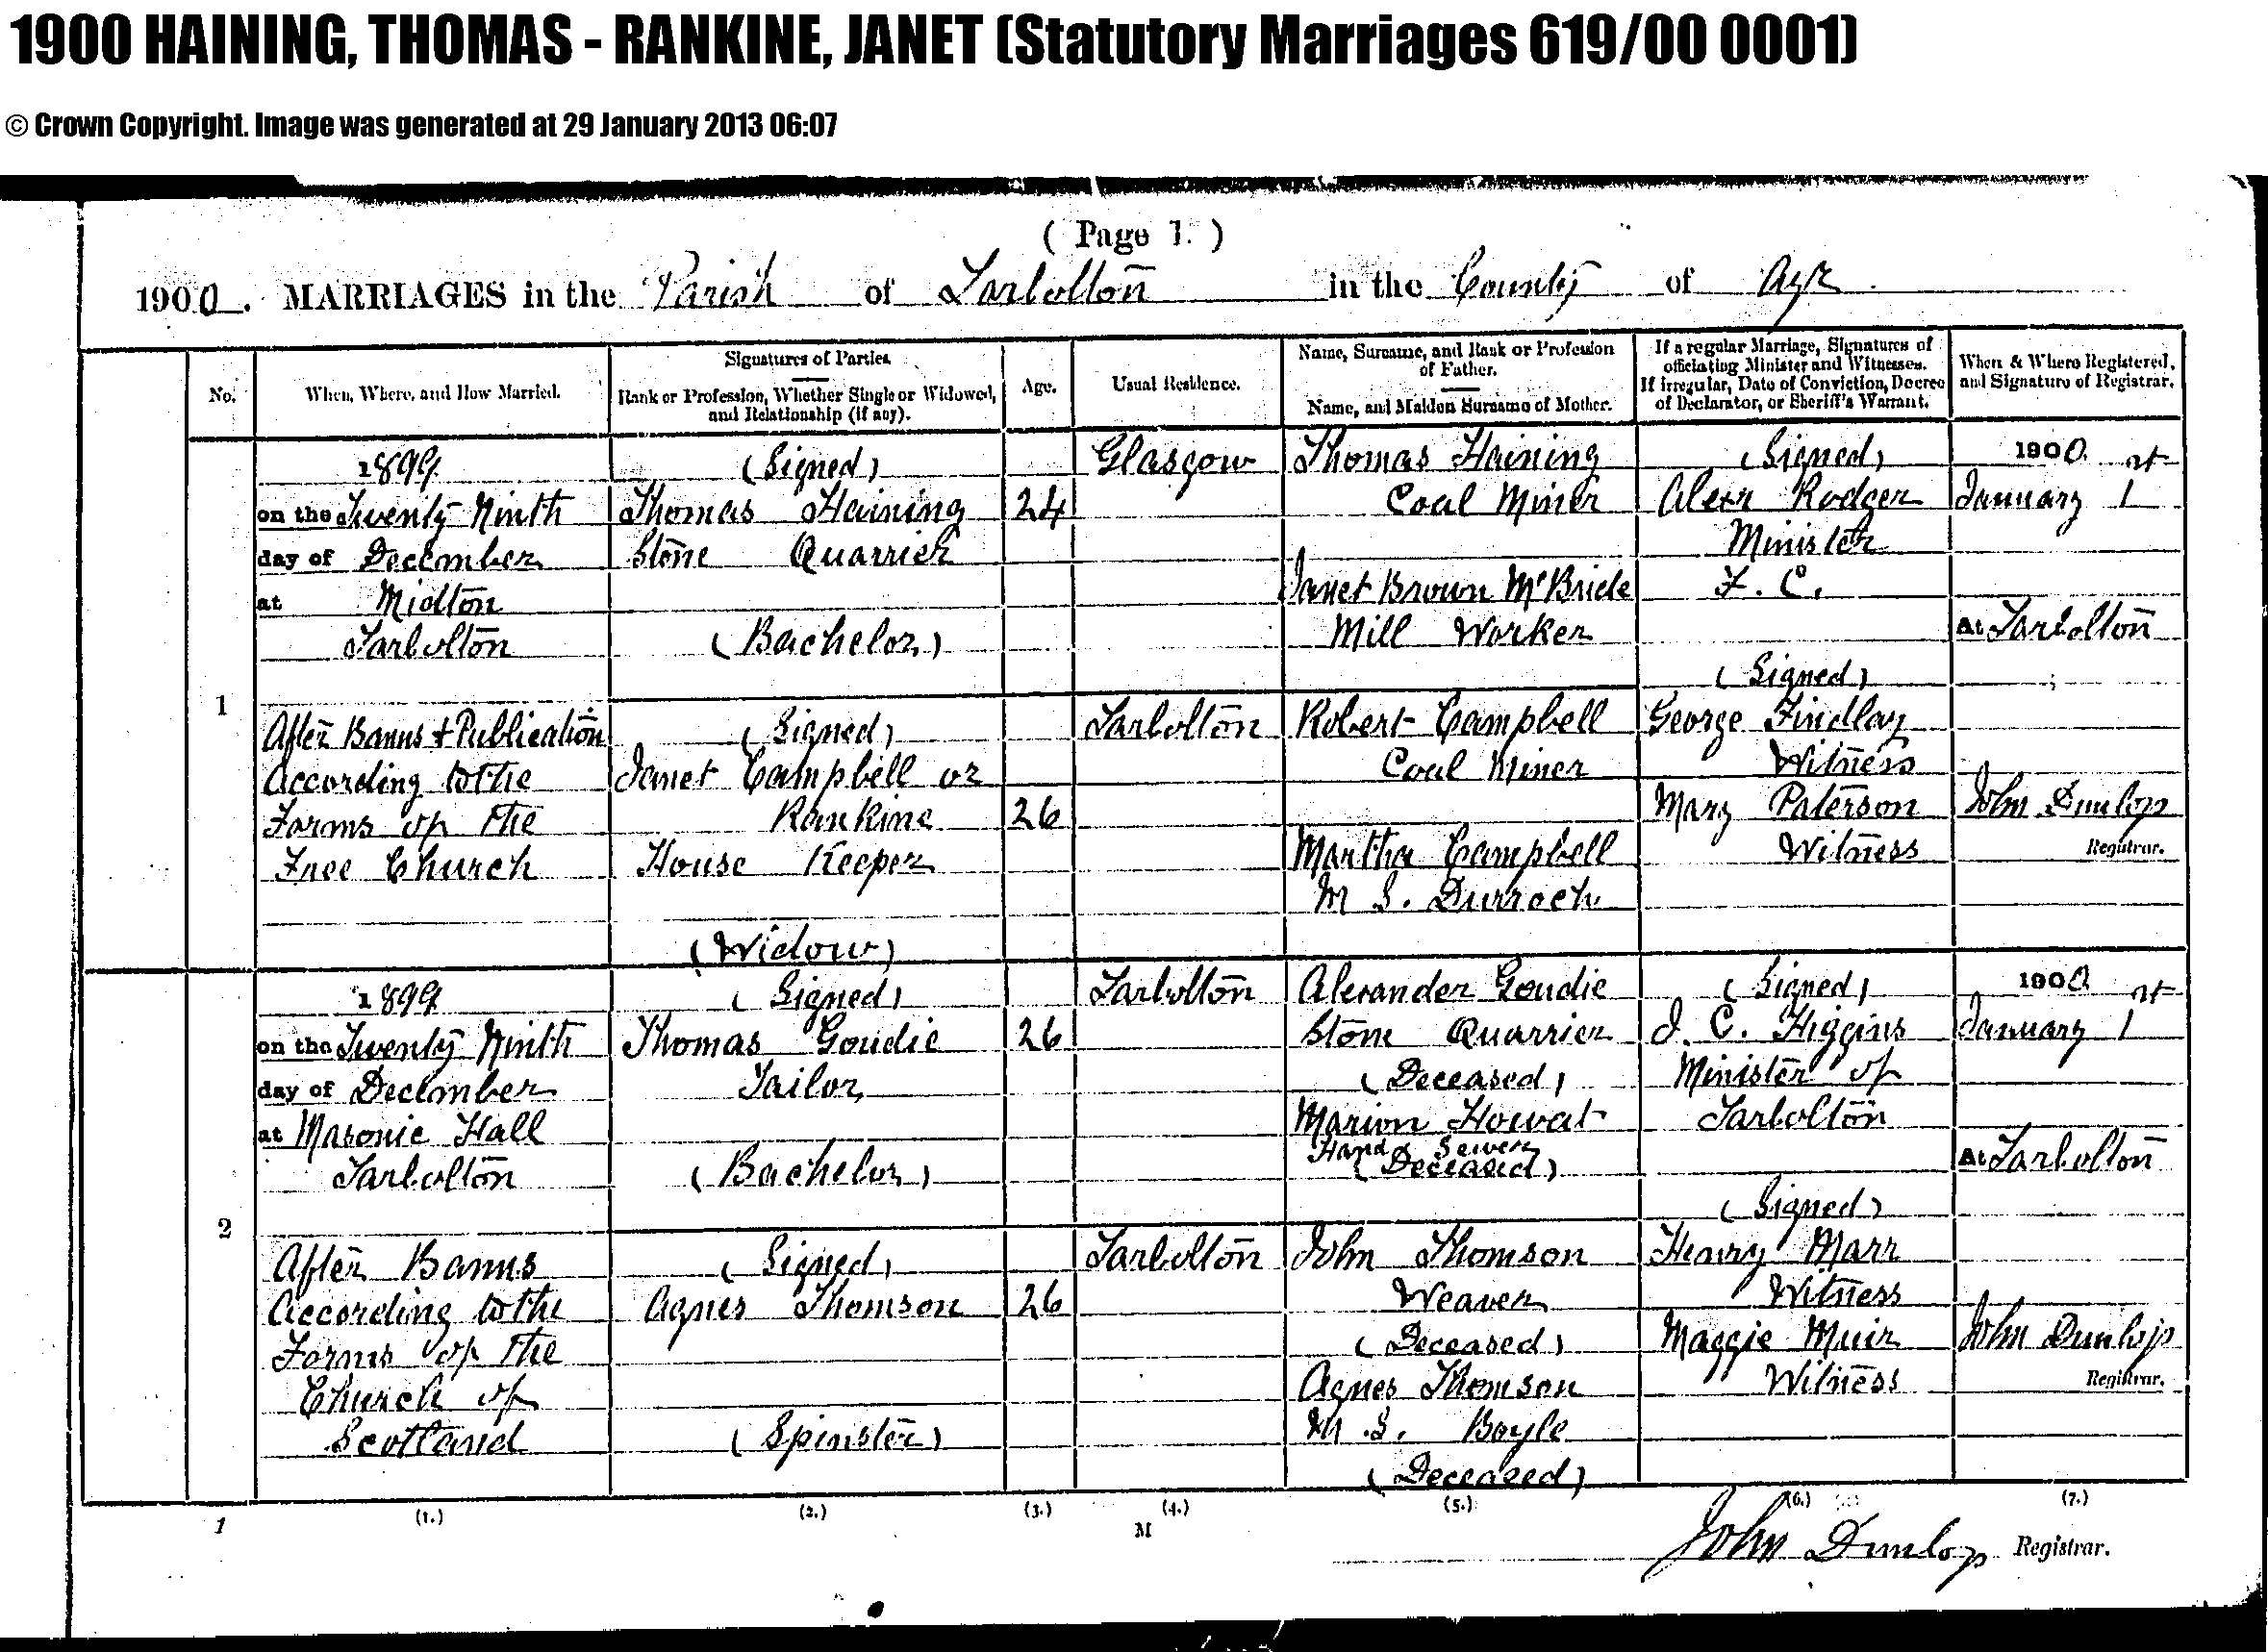 1900 HAINING, THOMAS - RANKINE, JANET (Statutory Marriages 619/00 0001)
© Crown Copyright. Image was generated at 29 January 2013 06:07
( Page 1. )
1900. MARRIAGES in the Parish of Tarbolton in the County of Ayr
No.
When, Where, and How Married.
Signatures of Parties.
Rank or Profession, Whether Single or Widowed,
and Relationship (if any).
Age.
Usual Residence.
Name, Surname, and Rank or Profession
of Father.
Name, and Maiden Surname of Mother.
If a regular Marriage, Signatures of
officiating Minister and Witnesses.
If irregular, Date of Conviction, Decree
of Declarator, or Sheriff's Warrant.
When & Where Registered,
and Signature of Registrar.
1
1899
on the Twenty Ninth
day of December
at Midton
Tarbolton
After Banns & Publication
According to the
Forms of the
Free Church
(Signed)
Thomas Haining
Stone Quarrier
(Bachelor)
(Signed)
Janet Campbell or
Rankine
House Keeper
(Widow)
24
26
Glasgow
Tarbolton
Thomas Haining
Coal Miner
Janet Brown McBride
Mill Worker
Robert Campbell
Coal Miner
Martha Campbell
M S. Durroch
(Signed)
Alexr Rodger
Minister
F. C.
(Signed)
George Findlay
Witness
Mary Paterson
Witness
1900 at
January 1
At Tarbolton
John Dunlop
Registrar.
2
1899
on the Twenty Ninth
day of December
at Masonic Hall
Tarbolton
After Banns
According to the
Forms of the
Church of
Scotland
(Signed)
Thomas Goudie
Tailor
(Bachelor)
(Signed)
Agnes Thomson
(Spinster)
26
26
Tarbolton
Tarbolton
Alexander Goudie
Stone Quarrier
(Deceased)
Marion Howat
Hand Sewer
(Deceased)
John Thomson
Weaver
(Deceased)
Agnes Thomson
M.S. Boyle
(Deceased)
(Signed)
J. C. Higgins
Minister of
Tarbolton
(Signed)
Henry Marr
Witness
Maggie Muir
Witness
1900 at
January 1
At Tarbolton
John Dunlop
Registrar.
1
(1.)
(2.)
(3.)
(4.)
(5.)
(6.)
(7.)
M
John Dunlop Registrar.